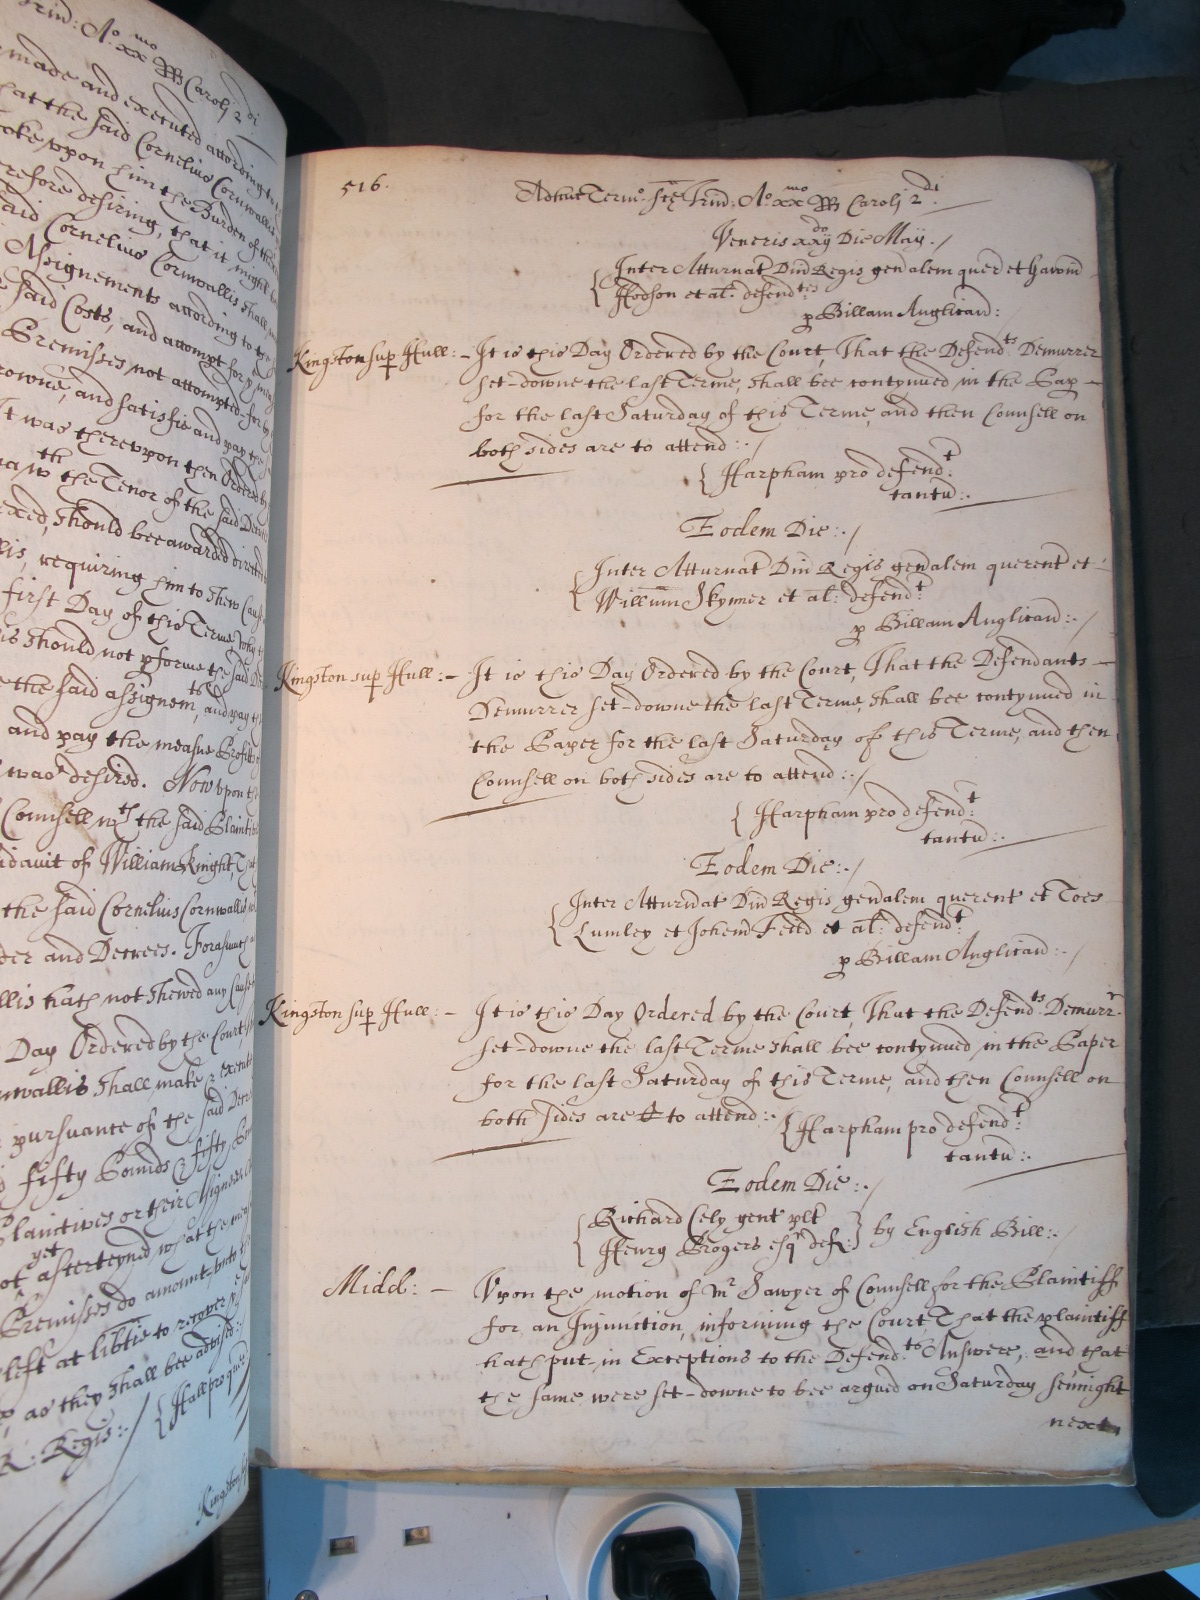 Trin: Ao xxmo RR Carolj 2di
made and executed according to
that the said Cornelius Cornwallis
tooke vpon him the Burden of the
refore desiring, that it might
said Cornelius Cornwallis shall
Assignements according to
said Costs, and attempt for
Premisses not attempted for
Crowne, and satisfie and pay the
It was therevpon then Ordered
wth the Tenor of the said
should bee awarded
requiring him to shew Cause
first Day of this Terme why
should not pforme the said
the said assignemt, and pay
and pay the measne Profitts
was desired. Now vpon
Counsell wth the said Plaint
Affidauit of William Knight, That
the said Cornelius Cornwallis
Order and Decrees. Forasmuch
hath not shewed any Cause
Day Ordered by the Court,
Cornwallis shall make & execute
pursuance of the said
fifty Pounds & fifty
Plaintives or their Assignes
yet
not asserteyned what the
Premisses do amount vnto
left at libtie to recover
as they shall bee advised:
{Hall pro quer
R: Regis:
Kingston
516.
Adhuc Termo: Scte Trin: Ao: xxmo RR Carolj 2di:
Veneris xxijdo Die May./
Inter Atturnat Dni Regis genalem quer et
Hodson et al: defendtes
p Billam Anglican:
Kingston sup Hull:- It is this Day Ordered by the Court, That the Defendts Demurrer
set-downe the last Terme, shall bee contynued in the Pap -
for the last Saturday of this Terme, and then Counsell on
both sides are to attend:./
{Harpham pro defendt:
tantu:.
Eodem Die:./
Inter Atturnat Dni Regis genalem querent et
Willum Skymer et al: defendt:
p Billam Anglican:./
Kingston sup Hull:- It is this Day Ordered by the Court, That the Defendants -
Demurrer set-downe the last Terme, shall bee contynued in
the Paper for the last Saturday of this Terme, and then
Counsell on both sides are to attend:./
{Harpham pro defendt:
tantu:.
Eodem Die:./
Inter Atturnat Dni Regis genalem querent et
Lumley et Johem et al: defendt:
p Billam Anglican:./
Kingston sup Hull: - It is this Day Ordered by the Court, That the Defendts Demurr
set-downe the last Terme shall bee contynued in the Paper
for the last Saturday of this Terme, and then Counsell on
both sides are to attend:. {Harpham pro defendt:
tantu:.
Eodem Die:./
{Richard Cely gent plt
Henry Brogers esqr deft:} by English Bill:./
Midd: - Vpon the motion of Mr Sawyer of Counsell for the Plaintiff
for an Iniunction, informing the Court That the plaintiff
hath put in Exceptions to the Defendts Answere, and that
the same were set-downe to bee argued on Saturday sennight
next